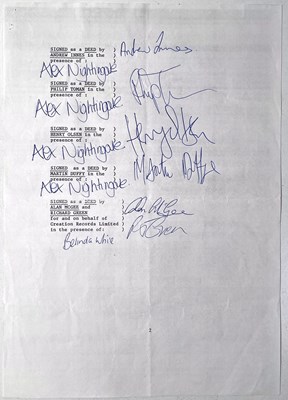 SIGNED as a DEED by )
ANDREW INNES in the ) Andrew Innes
presence of : )
Alex Nightingale
SIGNED as a DEED by )
PHILIP TOMAN in the )
presence of : )
Alex Nightingale
SIGNED as a DEED by )
HENRY OLSEN in the ) Henry Olsen
presence of : )
Alex Nightingale
SIGNED as a DEED by )
MARTIN DUFFY in the ) Martin Duffy
presence of : )
Alex Nightingale.
SIGNED as a DEED by )
ALAN MCGEE and ) Alan McGee
RICHARD GREEN )
for and on behalf of ) R Green
Creation Records Limited )
in the presence of: )
Belinda White